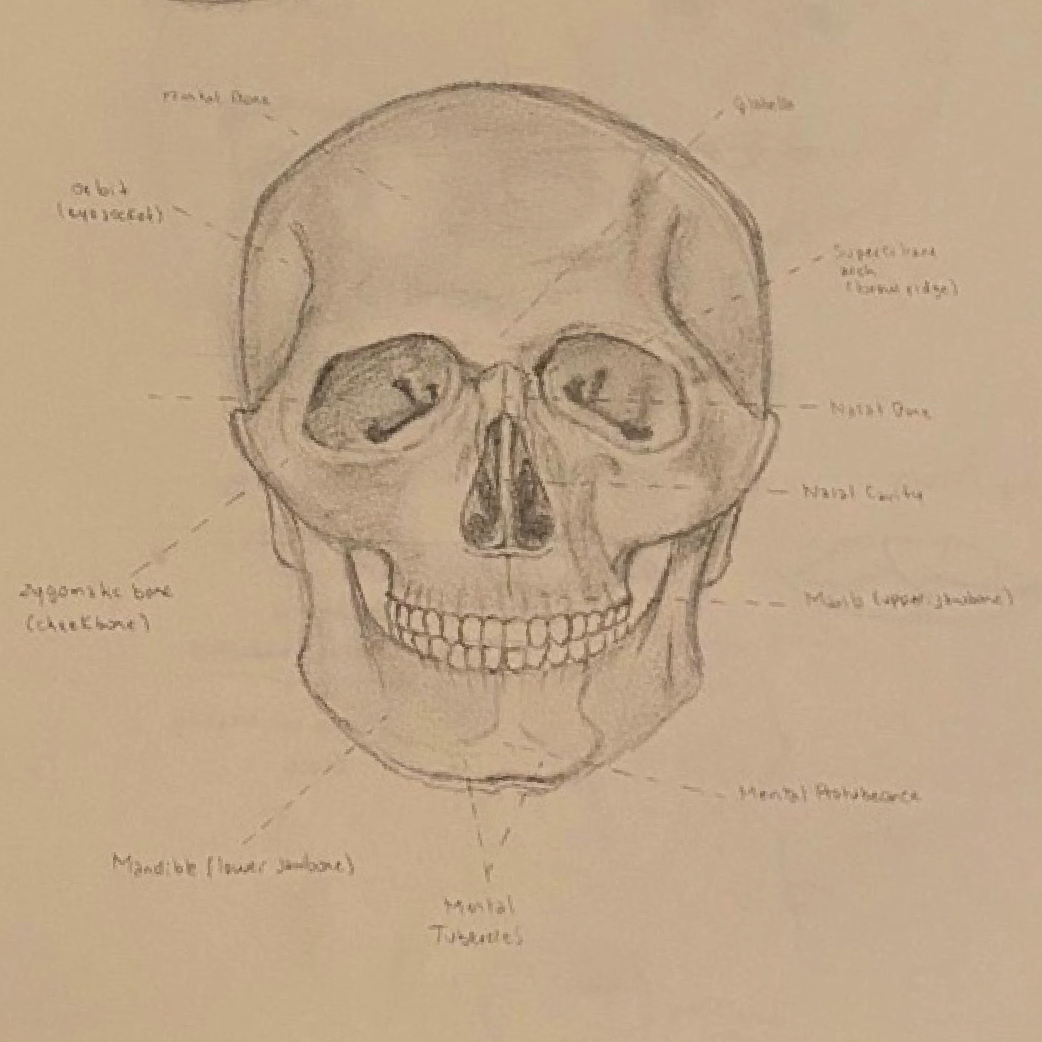 Frontal Bone
Glabella
Orbit
(eye socket)
arch
(brow ridge)
Nasal Bone
Nasal Cavity
Zygomatic bone
(cheekbone)
(upper jawbone)
Mental
Mandible (lower jawbone)
Mental
Tubercles